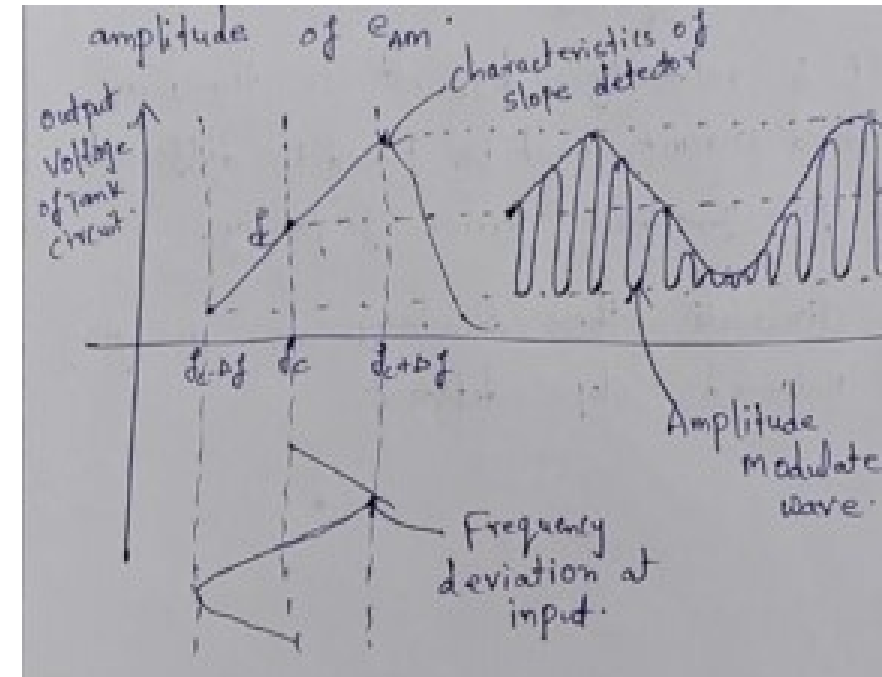 amplitude of eAM.
characteristics of
slope detector
output
voltage
of Tank
circuit.
fc-Df
fc
fc+Df
Amplitude
Modulate
wave.
Frequency
deviation at
input.